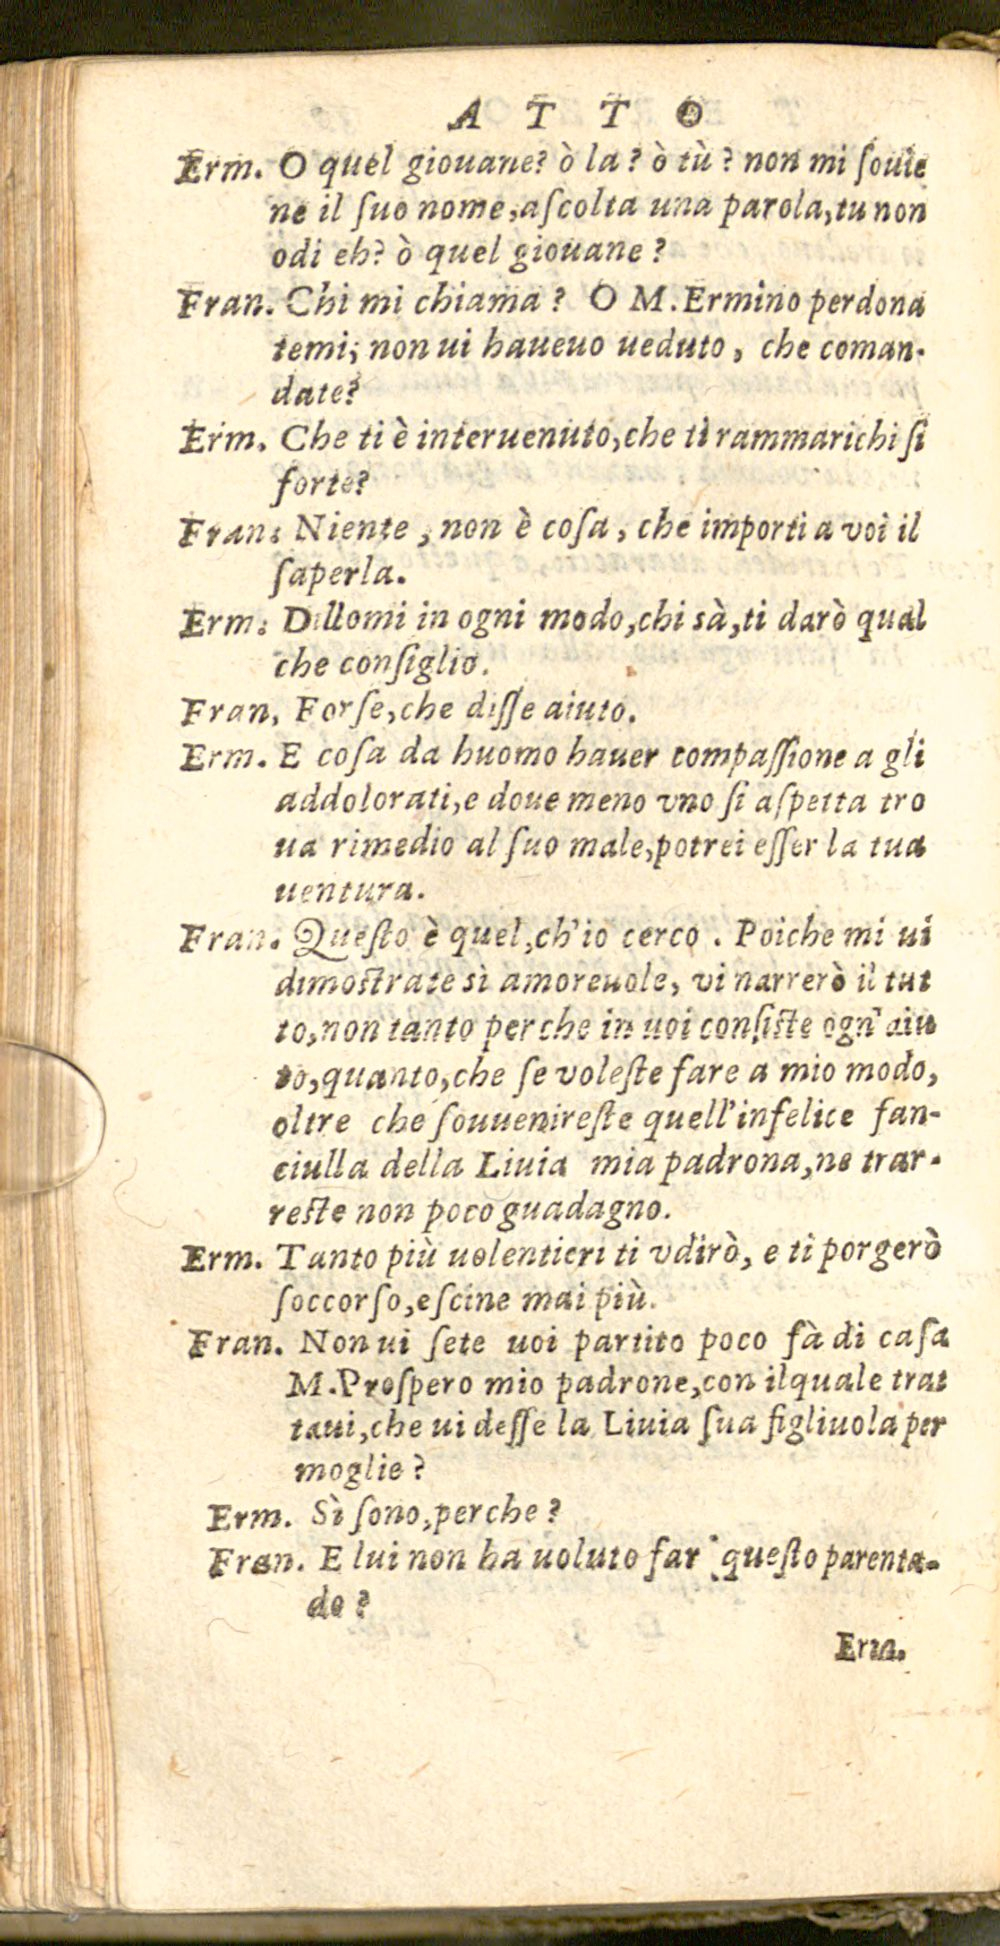 ATTO
Erm. O quel giouane? ò la? ò tù? non mi ſouie
ne il ſuo nome, aſcolta una parola, tu non
odi eh? ò quel giouane?
Fran. Chi mi chiama? O M. Ermino perdona
temi; non ui haueuo ueduto, che coman-
date?
Erm. Che ti è interuenuto, che ti rammarichi ſi
forte?
Fran: Niente, non è coſa, che importi a voi il
ſaperla.
Erm: Dillomi in ogni modo, chi sà, ti darò qual
che conſiglio.
Fran, Forſe, che diſſe aiuto.
Erm. E coſa da huomo hauer compaſſione a gli
addolorati, e doue meno vno ſi aſpetta tro
ua rimedio al ſuo male, potrei eſſer la tua
uentura.
Fran. Queſto è quel, ch'io cerco. Poiche mi ui
dimoſtrate sì amoreuole, vi narrerò il tut
to, non tanto perche in uoi conſiſte ogn' aiu
to, quanto, che ſe voleſte fare a mio modo,
oltre che ſouuenireſte quell'infelice fan-
ciulla della Liuia mia padrona, ne trar-
reſte non poco guadagno.
Erm. Tanto più uolentieri ti vdirò, e ti porgerò
ſoccorſo, eſcine mai più.
Fran. Non ui ſete uoi partito poco fà di caſa
M. Proſpero mio padrone, con ilquale trat
taui, che ui deſſe la Liuia ſua figliuola per
moglie?
Erm. Sì ſono, perche?
Fran. E lui non ha uoluto far queſto parenta-
do?
Erm.